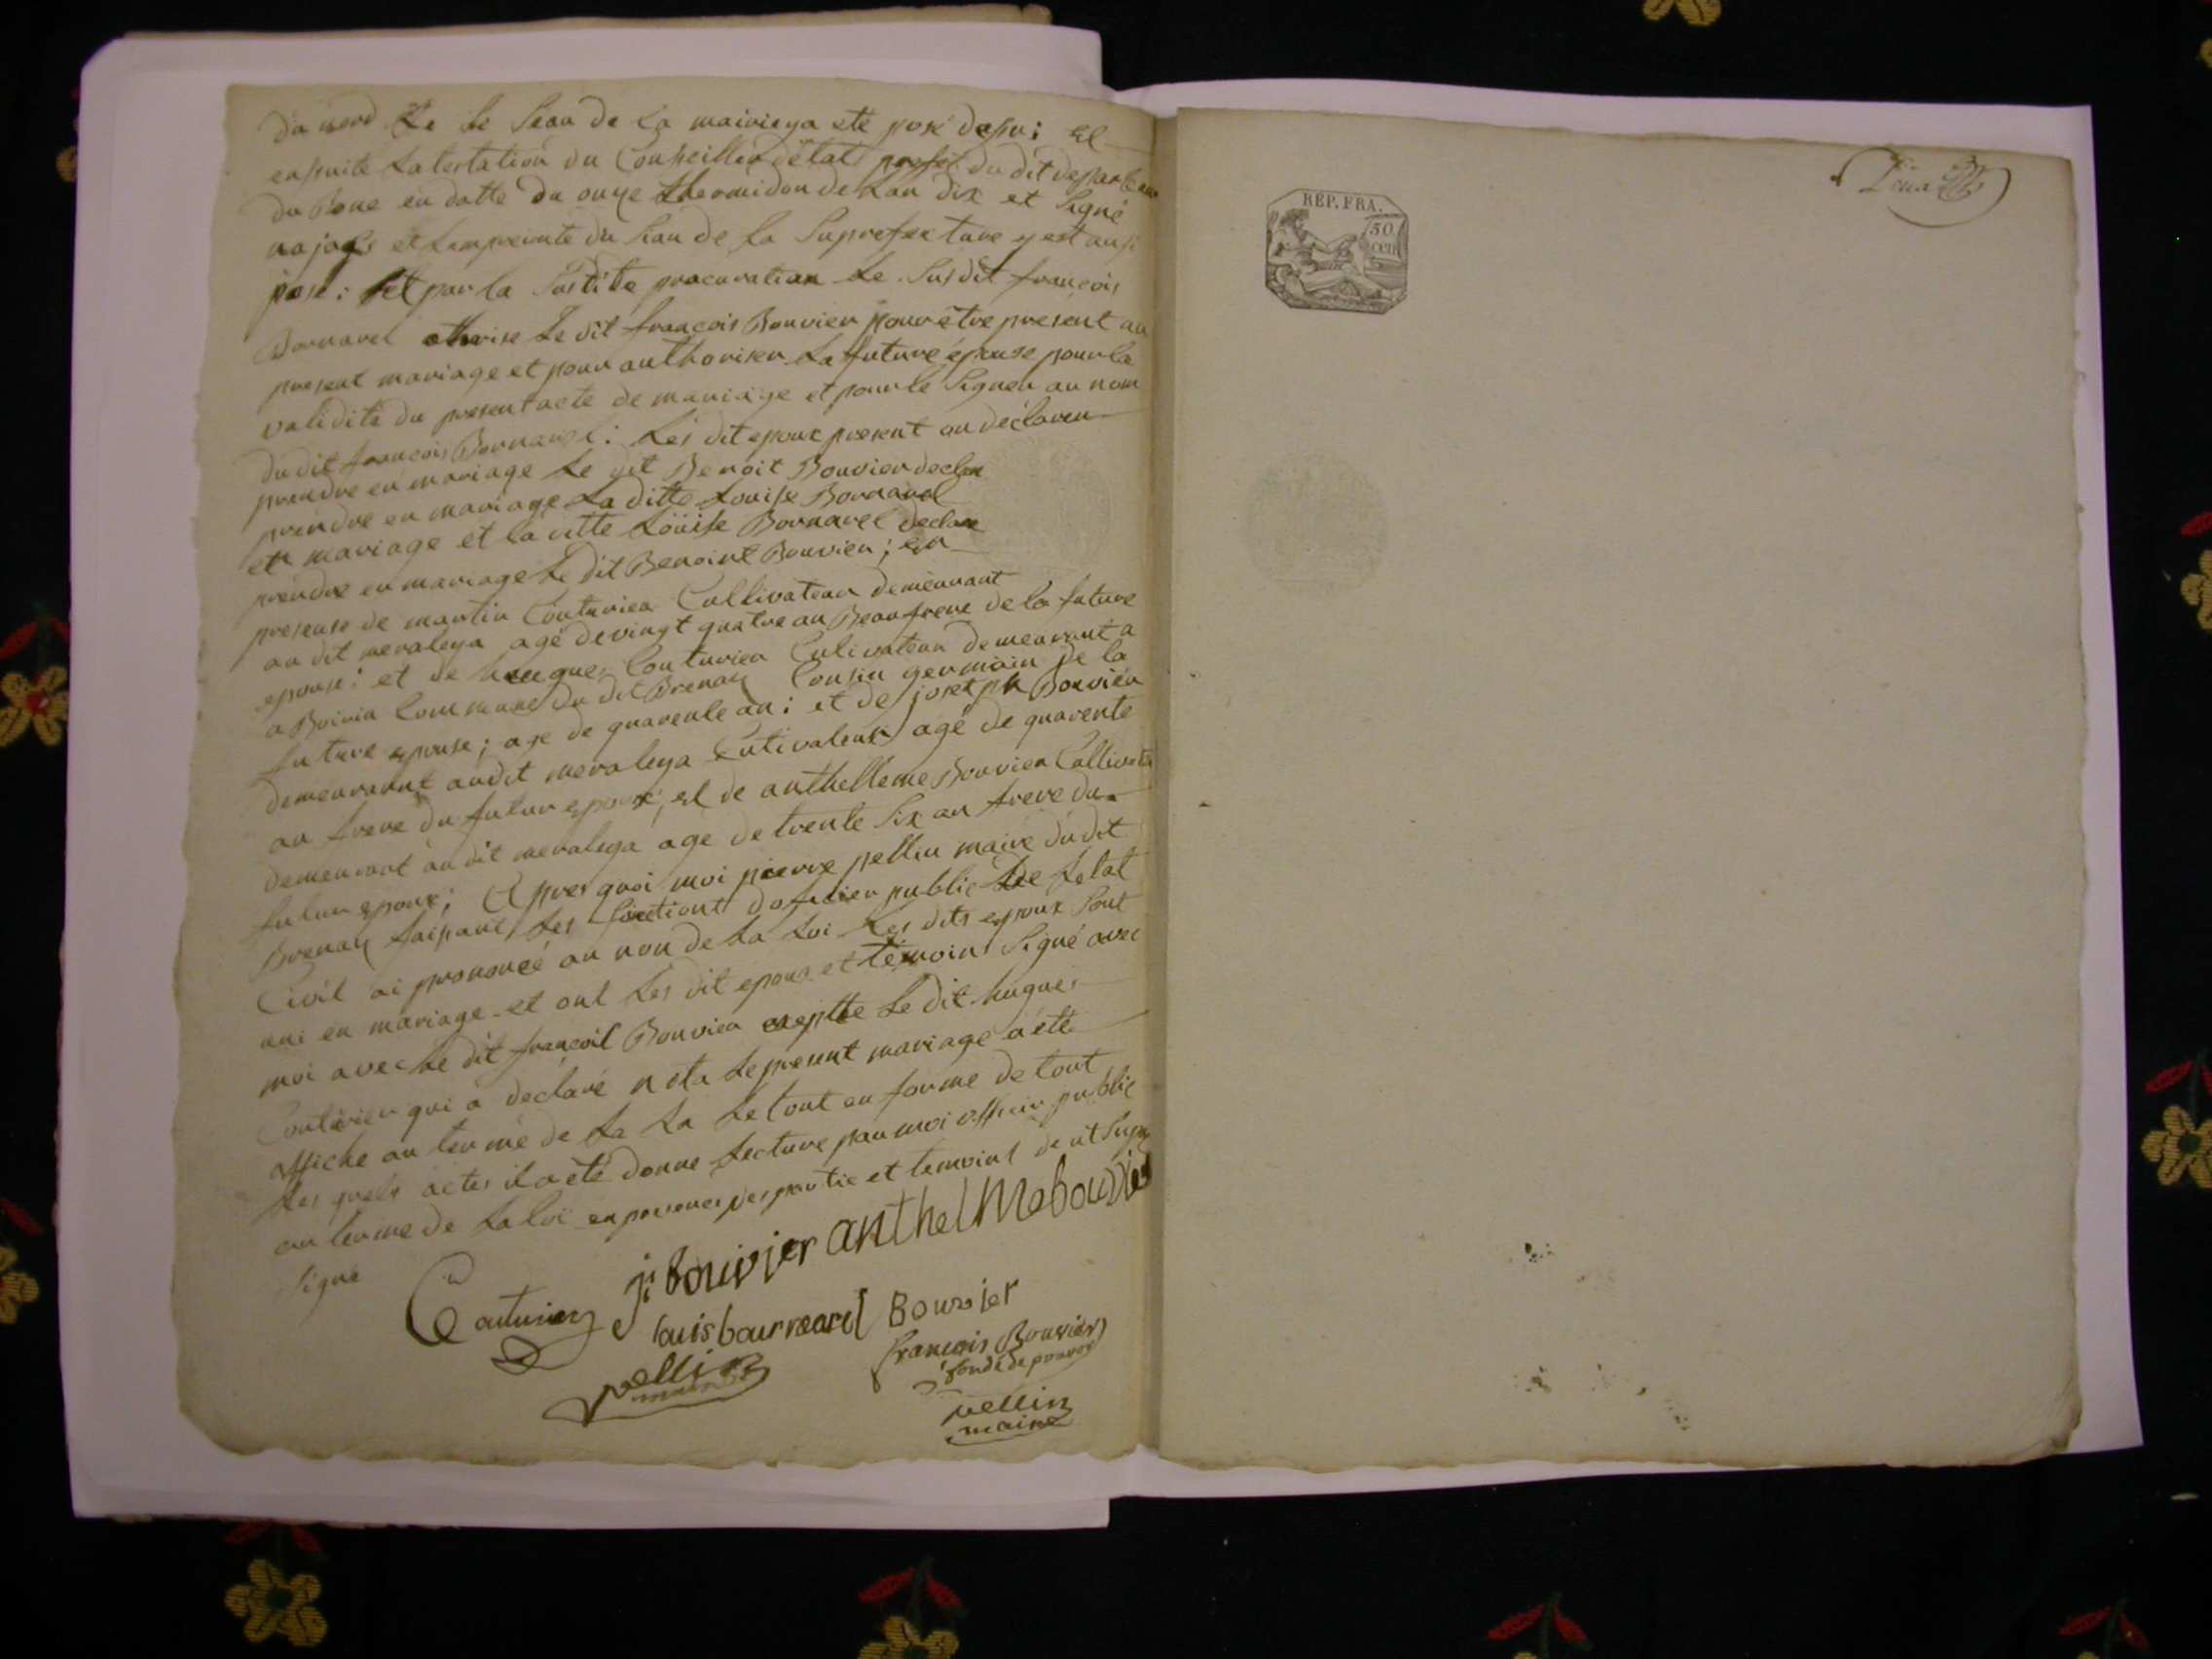 du nord Le le Seau de la mairie y a eté posé depui; et
ensuite Latestation du Conseiller detat prefet du dit departem
du Rone en datte du onze thermidon de Lan dix et Signé
najots et Lempreinte du Seau de la Suprefecture y est ausi
posé: et par la Susditte procuration Le Susdit françois
Bornarel othorise Le dit françois Bouvier pour être present au
present mariage et pour authoriser La future épouse pour la
validité du present acte de mariage et pour le Signer au nom
du dit françois Bornarel: Les dit epoux present on déclaren
prendre en mariage Le dit Benoit Bouvier declar
prendre en mariage La ditte Louise Bornarel
et mariage et la ditte Loüise Bornarel declare
prendre en mariage Le dit Benoint Bouvier; en
presense de martin Couturier Cultivateur demeurant
au dit meraleya agé de vingt quatre an Beaufrere de la future
epouse: et de hugues Couturier Culivateur demeurant a
a Boiria Commune du dit Brenaz Cousin germain de la
future epouse; age de quarente an: et de joseph Bouvier
demeurant audit meraleya Cutivateur agé de quarente
an frere du futur epoux; et de anthelleme Bouvier Cultivate
demeurant au dit meraleya age de trente Six an frere du
futur epoux; Apres quoi moi pierre pellin maire du dit
Brenaz faisant Les fonctions doficier public De Letat
Civil ai prononcé au non de La Loi Les dits epoux Sont
uni en mariage et ont Les dit epoux et témoins Signé avec
moi avec Le dit françoil Bouvier exepte Le dit hugues
Couturier qui a declaré nota Le present mariage a été
affiche au terme de La La Le tout en forme de tout
Les quels actes il a été donne Lecture par moi officier public
au terme de La loi en presences des partie et temoins de ut Supra
Signé
Couturier j: bouvier anthelme bouvier
louis bournarel Bouvier
pellin françois Bouvier
fondé de pouvoir
pellin
maire
REP. FRA.
50
cen